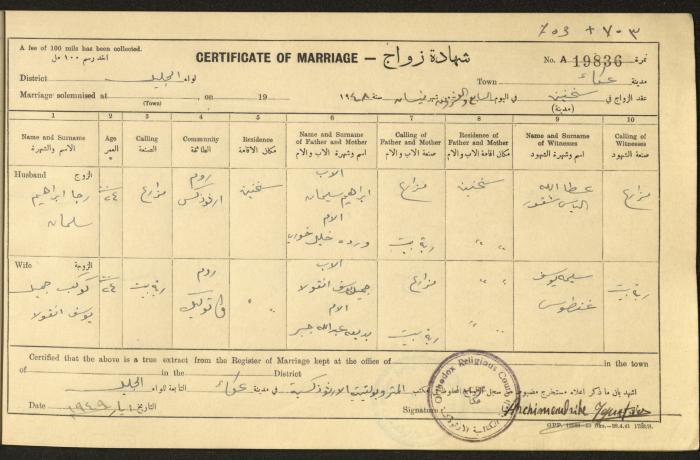 703 + ٧٠٣
A fee of 100 mils has been collected.
اخذ رسم ١٠٠ مل
CERTIFICATE OF MARRIAGE — شهادة زواج
No. A 19836 نمرة
District لواء الجليل
Town مدينة عكاء
Marriage solemnised at , on 19
(Town)
عقد الزواج في سخنين في اليوم السابع والعشرون نيسان سنة ١٩٤٨
(مدينة)
1 2 3 4 5 6 7 8 9 10
Name and Surname Age Calling Community Residence Name and Surname of Father and Mother Calling of Father and Mother Residence of Father and Mother Name and Surname of Witnesses Calling of Witnesses
الاسم والشهرة العمر الصنعة الطائفة مكان الاقامة اسم وشهرة الاب والام صنعة الاب والام مكان اقامة الاب والام اسم وشهرة الشهود صنعة الشهود
Husband الزوج
رجا ابراهيم سلمان
٢٤
مزارع
روم ارثوذكس
سخنين
الاب
ابراهيم سليمان
الام
ورده خليل خوري
مزارع
ربة بيت
سخنين
" "
عطا الله الياس
مزارع
Wife الزوجة
كوكب جميل يوسف
٢٤
ربة بيت
روم كاثوليك
" "
الاب
جميل يوسف
الام
بديعه عبدالله جبر
مزارع
ربة بيت
" "
" "
سليمه يوسف غنطوس
ربة بيت
Certified that the above is a true extract from the Register of Marriage kept at the office of in the town
of in the District
اشهد بان ما ذكر اعلاه مستخرج
المتروبوليتية الارثوذكسية في مدينة عكاء التابعة للواء الجليل
Date التاريخ ١ ايار ١٩٤٩
Signature Archimendrite Ignatios
Orthodox Religious Court
عكا
GPP. 28.4.41